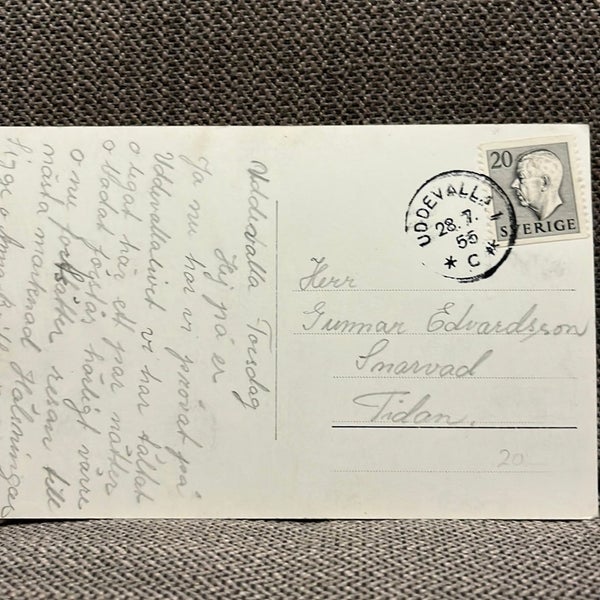 Uddevalla Torsdag
Hej på er
Ja nu har vi provat på
Uddevallalivet vi har tältat
o legat här ett par nätter
o Badat förstås härligt värre
o nu fortsätter resan till
nästa marknad Hälsningar
20
SVERIGE
UDDEVALLA 1
28.7.
55
* C *
Herr
Gunnar Edvardsson
Snarvad
Tidan.
20